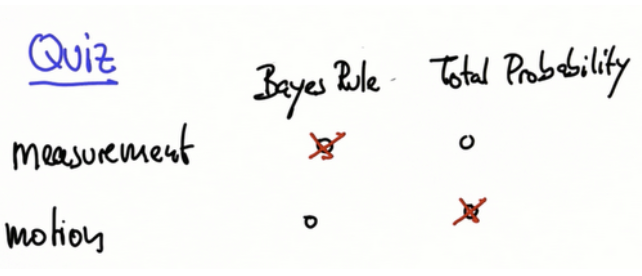 Quiz
Bayes Rule Total Probability
measurement
motion